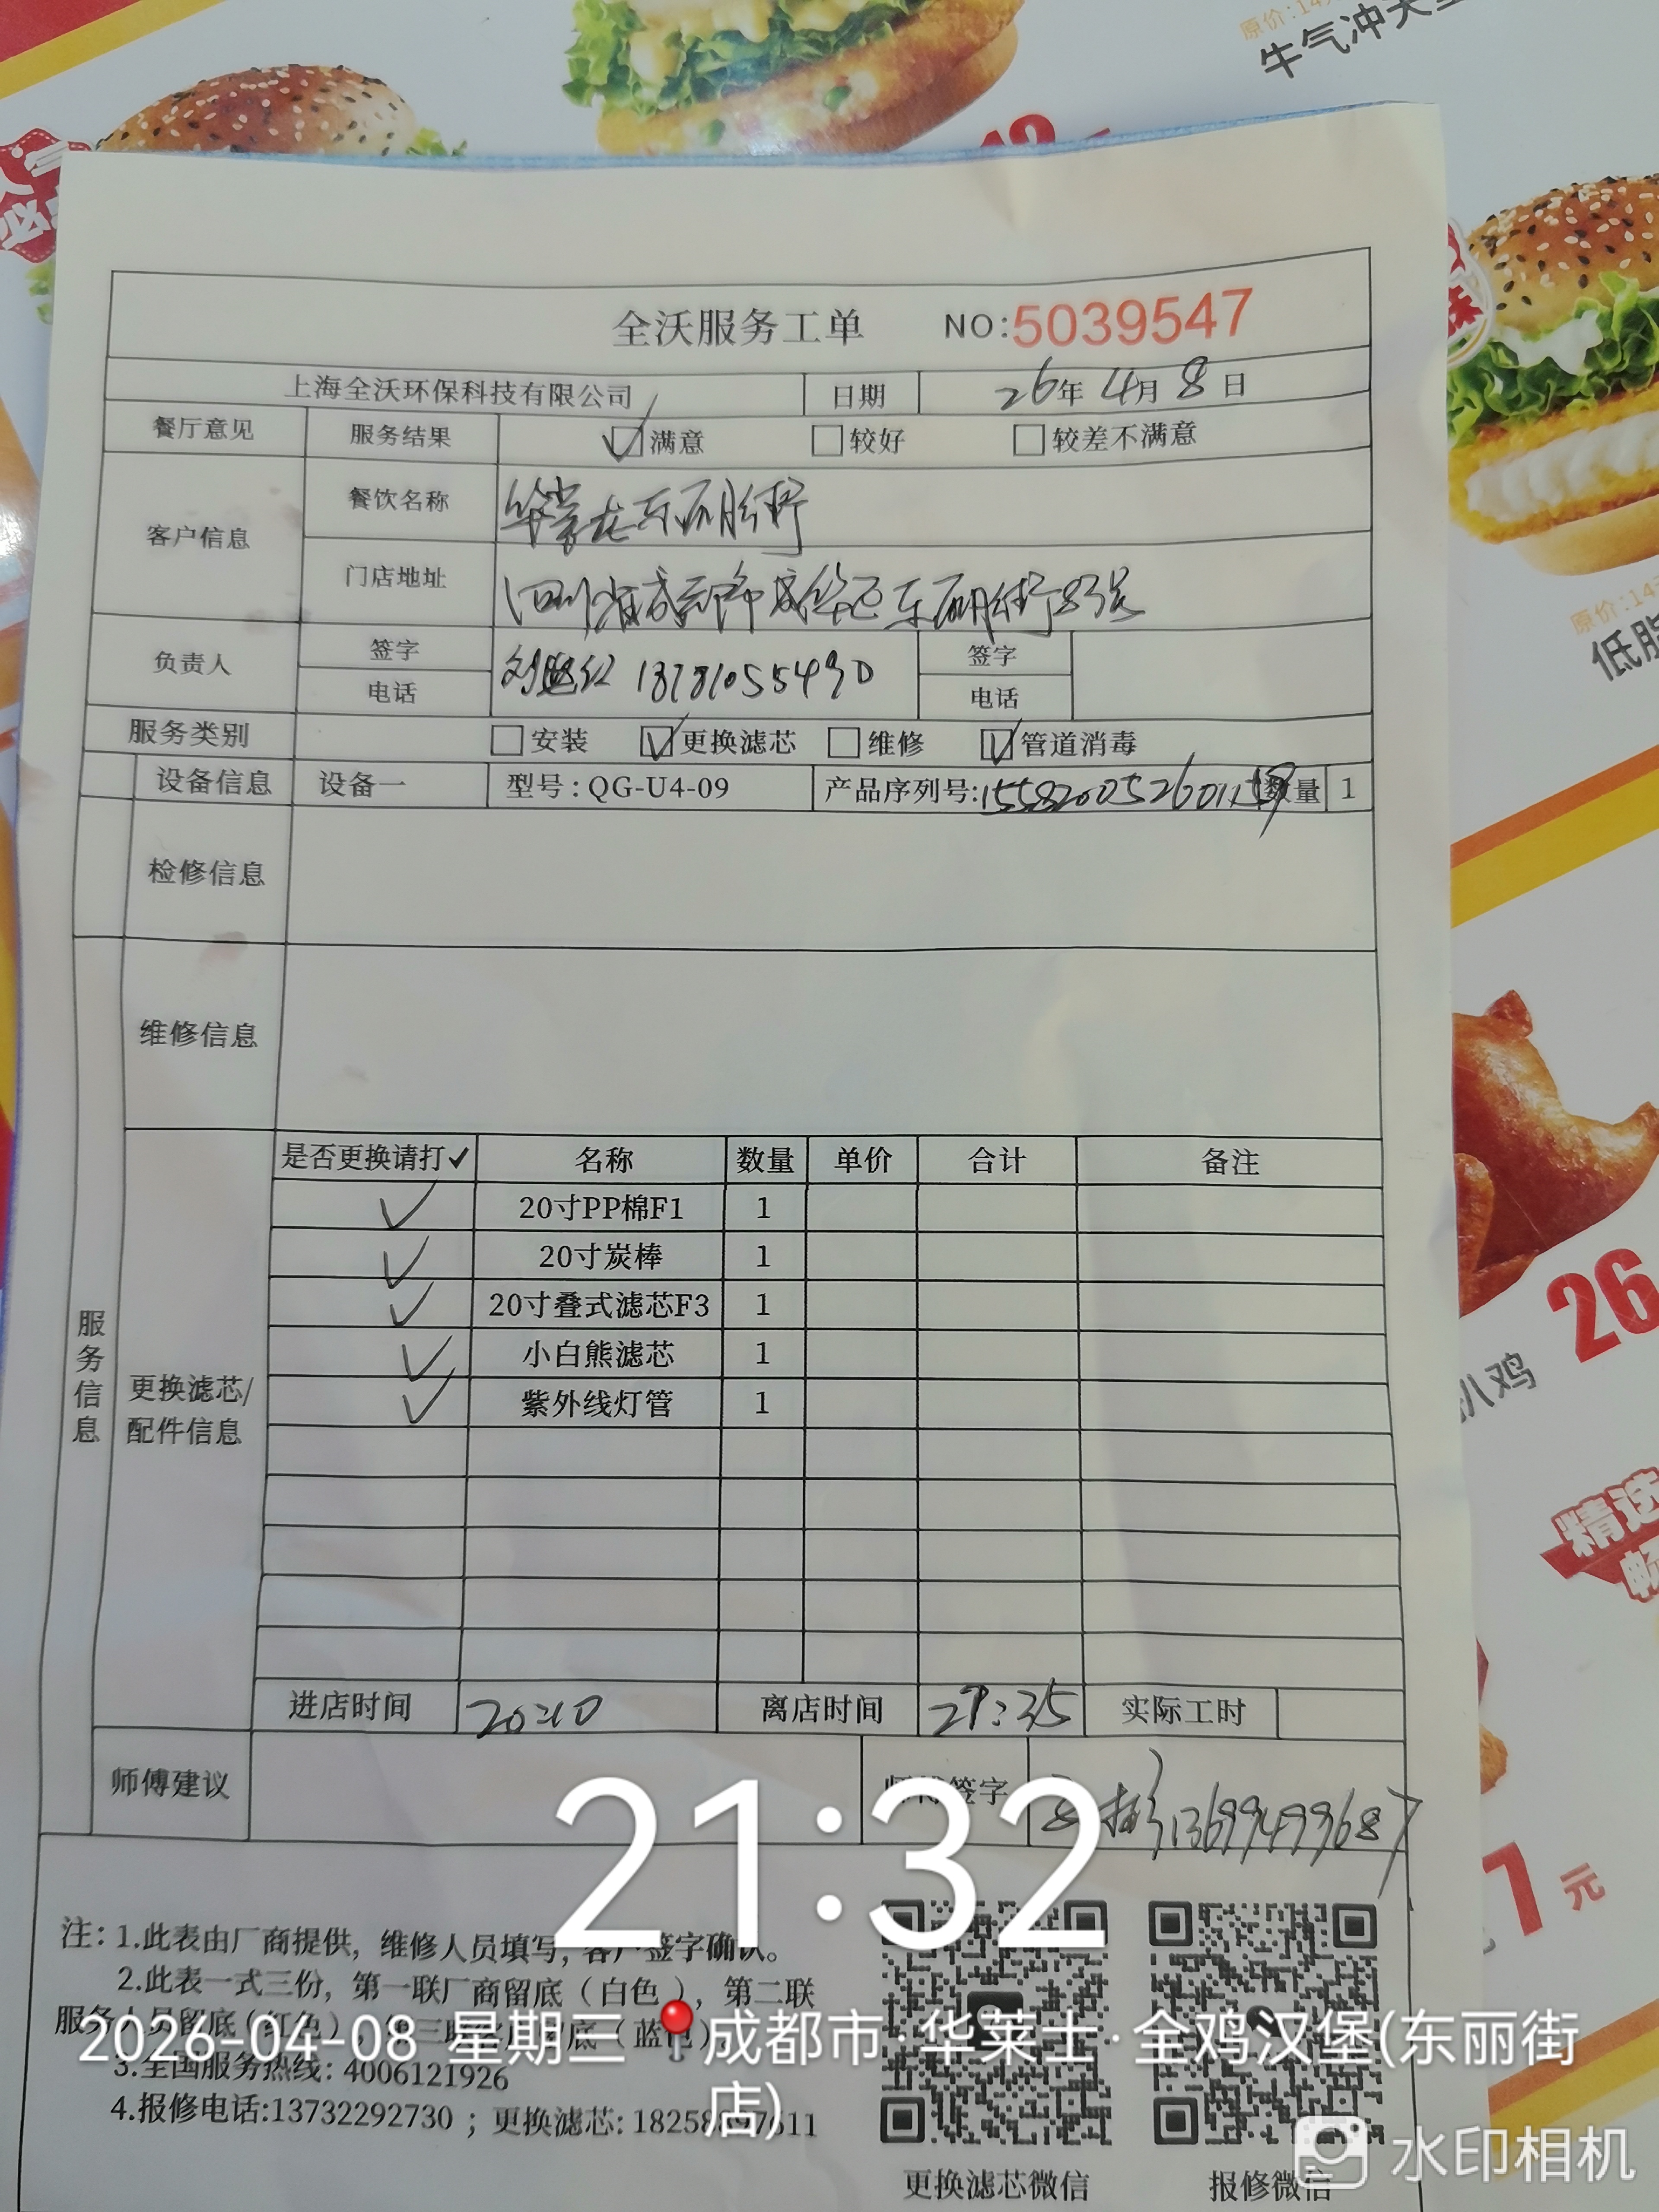 原价:14
牛气冲天
全沃服务工单 NO:5039547
上海全沃环保科技有限公司 日期 26年4月8日
餐厅意见 服务结果 满意 较好 较差不满意
客户信息 餐饮名称
门店地址 四川省成都市成华区东丽街83号
负责人 签字 电话 签字 电话
服务类别 安装 更换滤芯 维修 管道消毒
设备信息 设备一 型号:QG-U4-09 产品序列号: 数量 1
检修信息
维修信息
服务信息
更换滤芯/配件信息
是否更换请打✓ 名称 数量 单价 合计 备注
✓ 20寸PP棉F1 1
✓ 20寸炭棒 1
✓ 20寸叠式滤芯F3 1
✓ 小白熊滤芯 1
✓ 紫外线灯管 1
进店时间 20:10 离店时间 实际工时
师傅建议 师傅签字 13699499687
21:32
注:1.此表由厂商提供,维修人员填写,客户签字确认。
2.此表一式三份,第一联厂商留底(白色),第二联
服务人员留底(红色),第三联 留底(蓝色)
2026-04-08 星期三 成都市·华莱士·全鸡汉堡(东丽街
店)
3.全国服务热线: 4006121926
4.报修电话:13732292730 ; 更换滤芯:
更换滤芯微信 报修微信
水印相机
原价:14
低脂
26
扒鸡
精选
7元